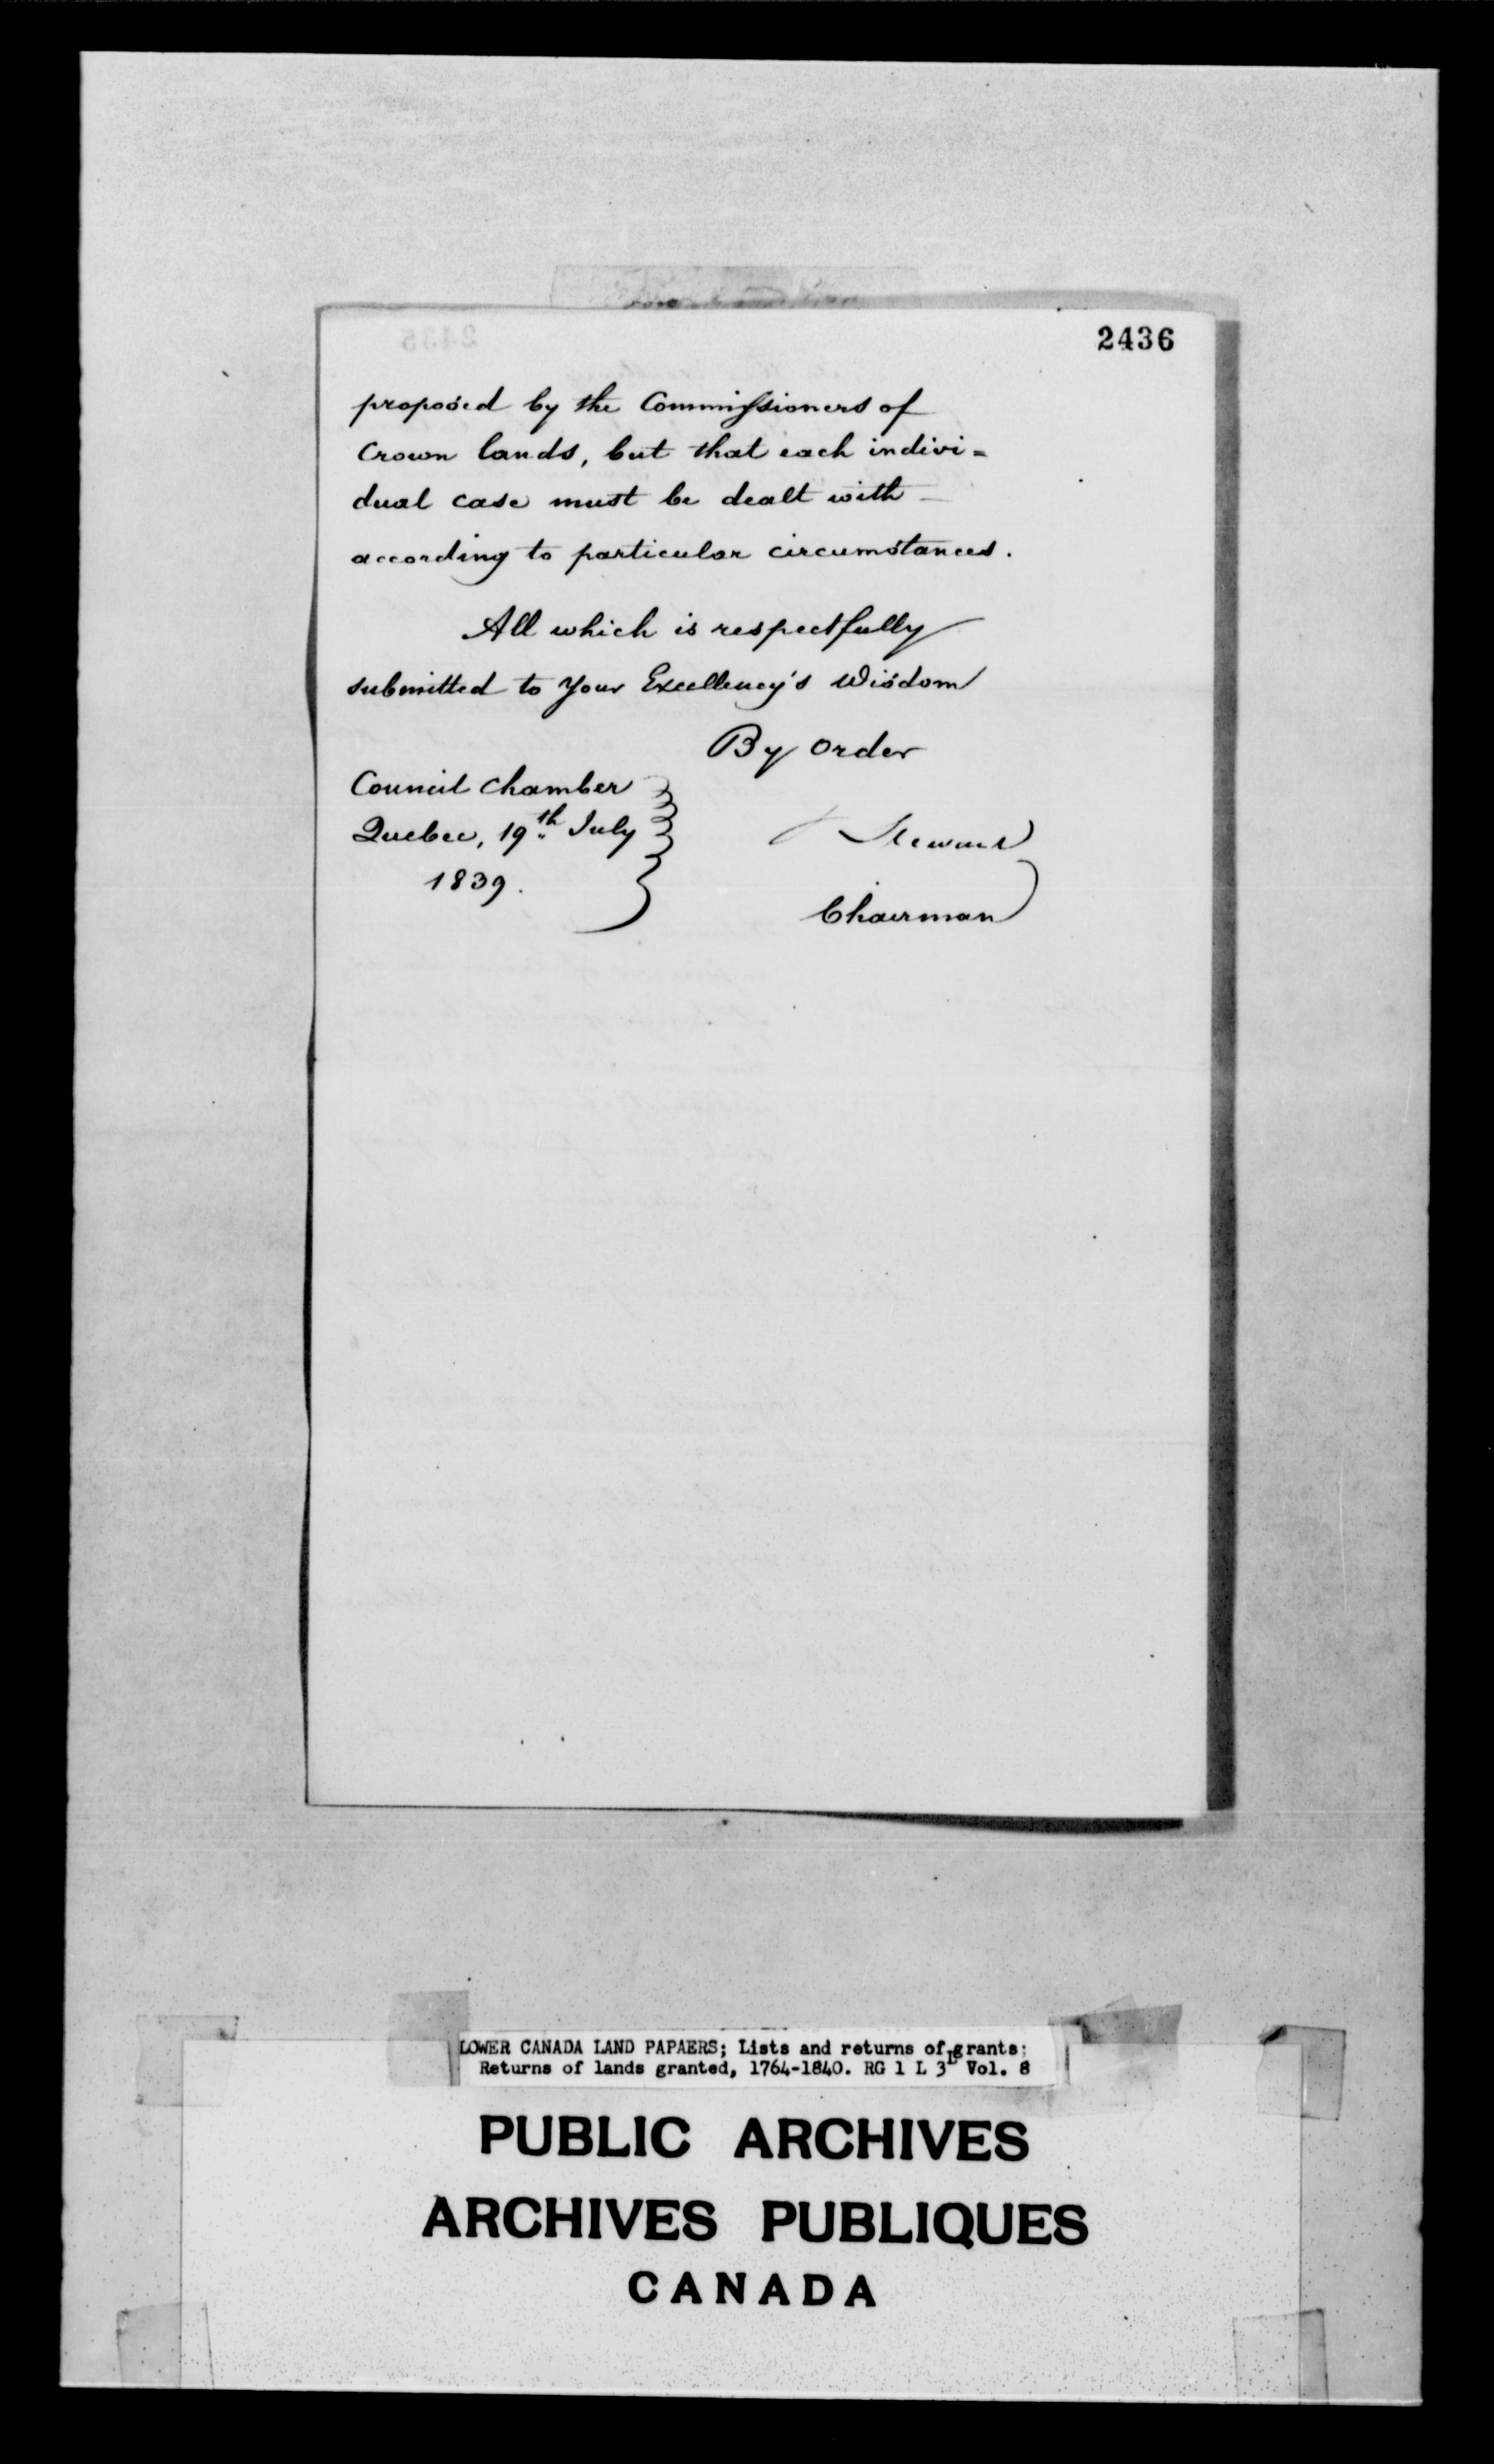 2436
proposed by the Commissioners of
Crown lands, but that each indivi=
dual case must be dealt with
according to particular circumstances.
All which is respectfully
submitted to Your Excellency's Wisdom
By Order
Council Chamber
Quebec, 19th July
1839.
Stewart
Chairman
LOWER CANADA LAND PAPAERS; Lists and returns of grants;
Returns of lands granted, 1764-1840. RG 1 L 3L Vol. 8
PUBLIC ARCHIVES
ARCHIVES PUBLIQUES
CANADA